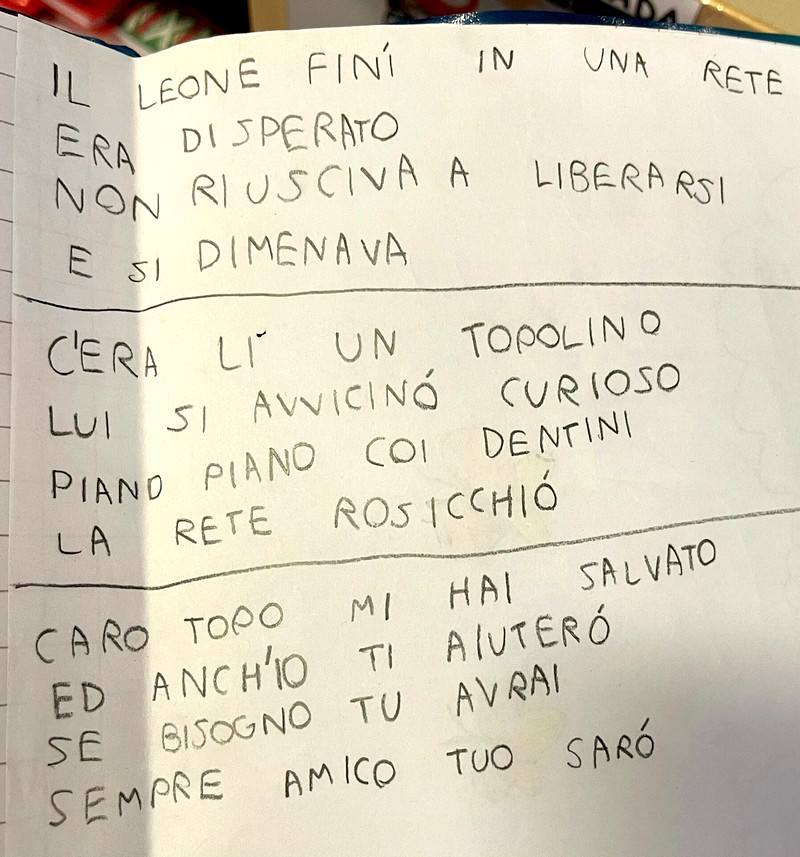 IL LEONE FINÍ IN UNA RETE
ERA DISPERATO
NON RIUSCIVA A LIBERARSI
E SI DIMENAVA
C'ERA LÌ UN TOPOLINO
LUI SI AVVICINÓ CURIOSO
PIANO PIANO COI DENTINI
LA RETE ROSICCHIÓ
CARO TOPO MI HAI SALVATO
ED ANCH'IO TI AIUTERÓ
SE BISOGNO TU AVRAI
SEMPRE AMICO TUO SARÓ